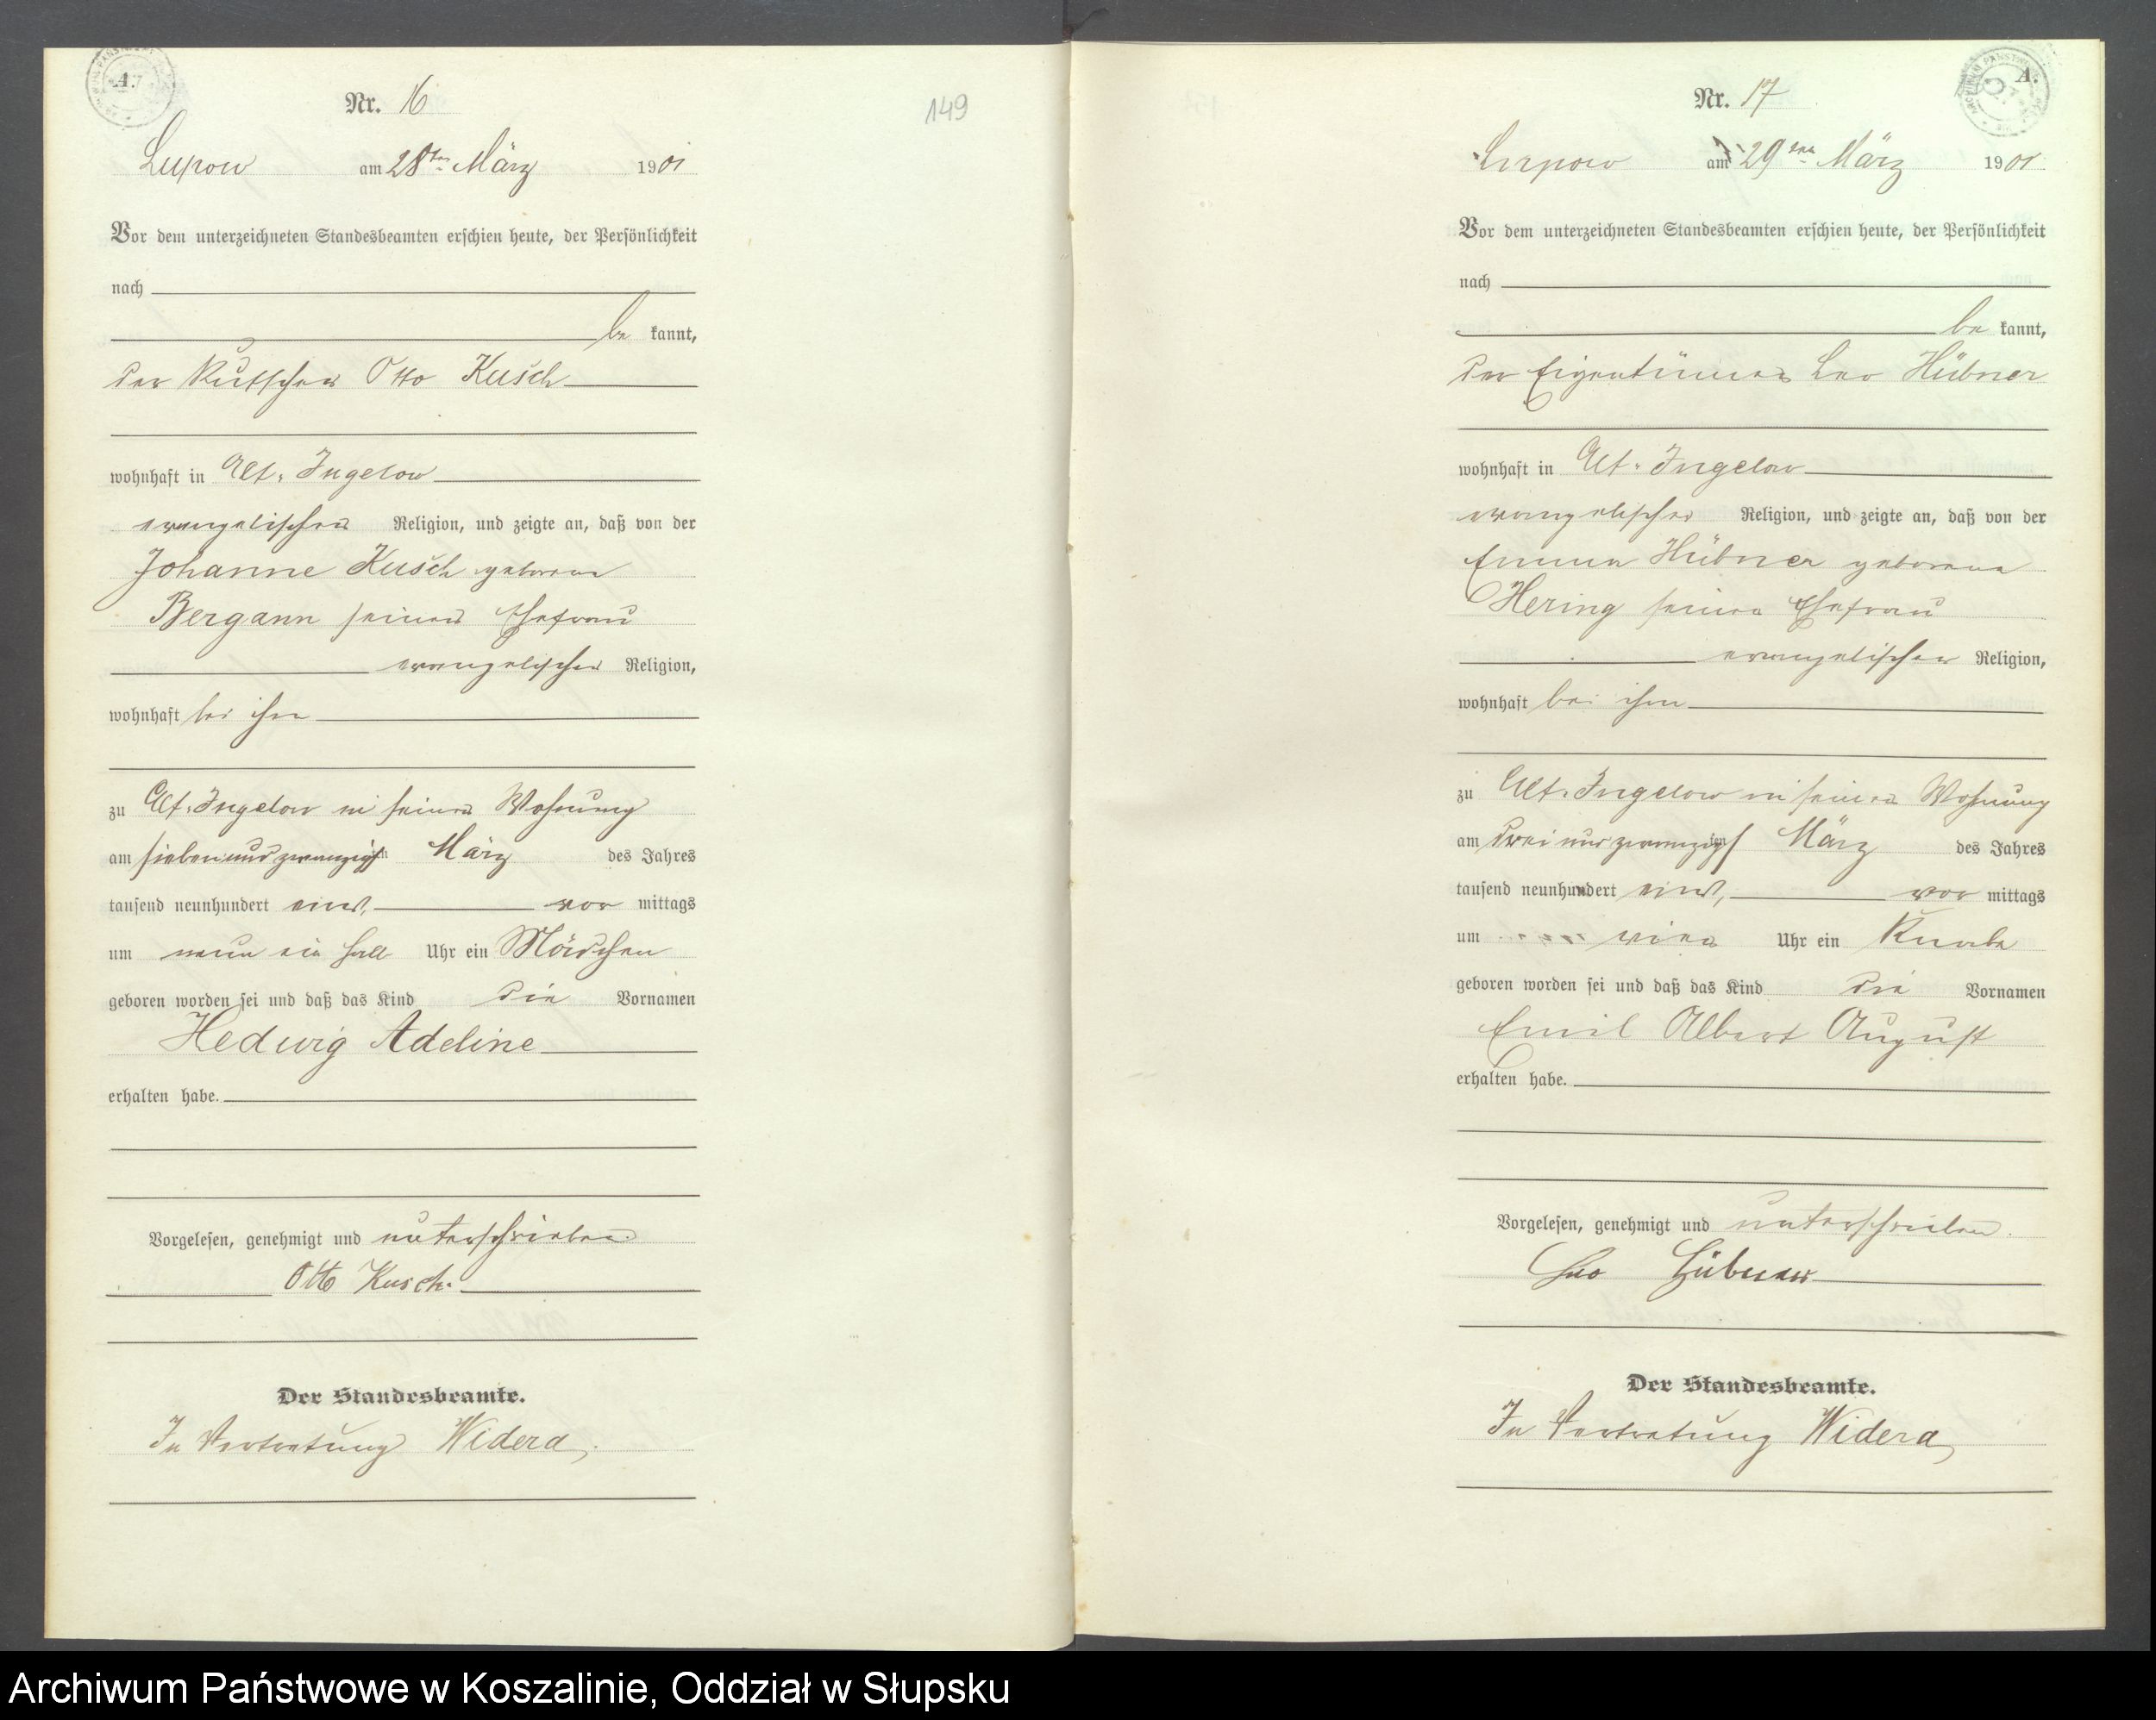 A.
Nr. 16
149
Lupow am 28ten März 1901
Vor dem unterzeichneten Standesbeamten erschien heute, der Persönlichkeit
nach
be kannt,
der Kutscher Otto Kusch
wohnhaft in Alt-Jugelow
evangelischer Religion, und zeigte an, daß von der
Johanne Kusch geborene
Bergann seiner Ehefrau
evangelischer Religion,
wohnhaft bei ihm
zu Alt-Jugelow in seiner Wohnung
am siebenundzwanzigsten März des Jahres
tausend neunhundert eins, vor mittags
um neun ein halb Uhr ein Mädchen
geboren worden sei und daß das Kind die Vornamen
Hedwig Adeline
erhalten habe.
Vorgelesen, genehmigt und unterschrieben.
Otto Kusch.
Der Standesbeamte.
In Vertretung Widera
A.
Nr. 17
Lupow am 29ten März 1901
Vor dem unterzeichneten Standesbeamten erschien heute, der Persönlichkeit
nach
be kannt,
der Eigentümer Leo Hübner
wohnhaft in Alt-Jugelow
evangelischer Religion, und zeigte an, daß von der
Emma Hübner geborene
Hering seiner Ehefrau
evangelischer Religion,
wohnhaft bei ihm
zu Alt-Jugelow in seiner Wohnung
am dreiundzwanzigsten März des Jahres
tausend neunhundert eins, vor mittags
um vier Uhr ein Knabe
geboren worden sei und daß das Kind die Vornamen
Emil Albert August
erhalten habe.
Vorgelesen, genehmigt und unterschrieben.
Leo Hübner
Der Standesbeamte.
In Vertretung Widera
Archiwum Państwowe w Koszalinie, Oddział w Słupsku